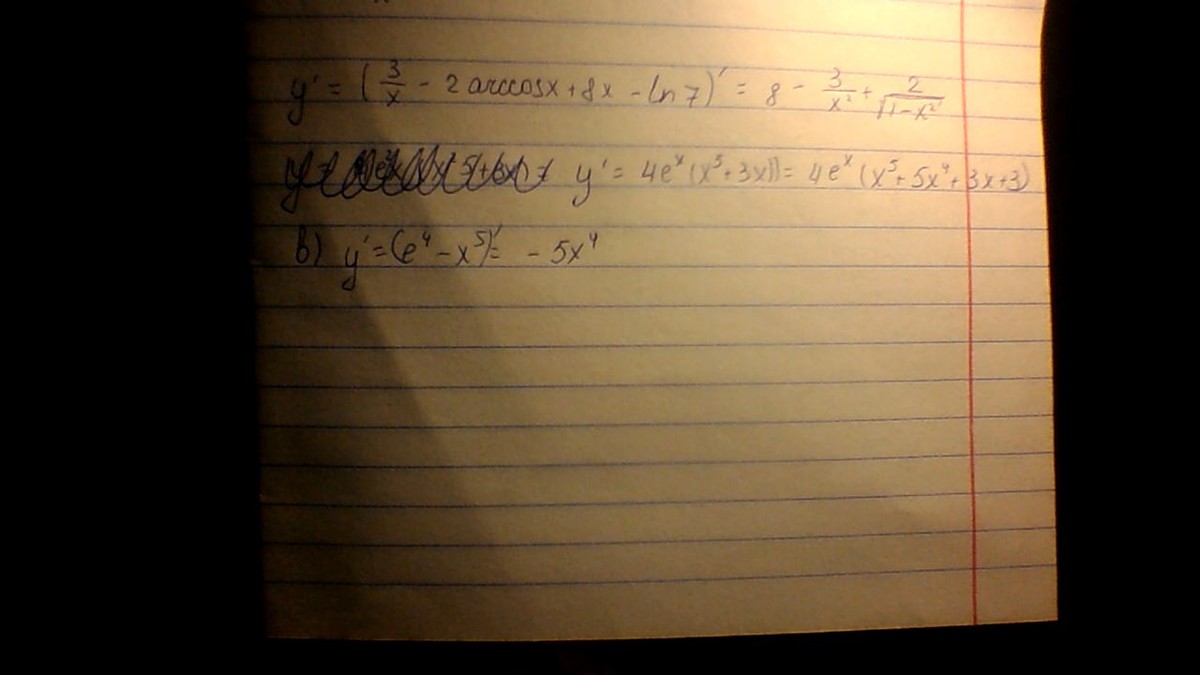 y' = (3/x - 2 arccosx + 8x - ln 7)' = 8 - 3/x² + 2/√(1-x²)
y' = 4e^x (x⁵+3x)) = 4e^x (x⁵+5x⁴+3x+3)
в) y' = (e⁴ - x⁵)' = - 5x⁴